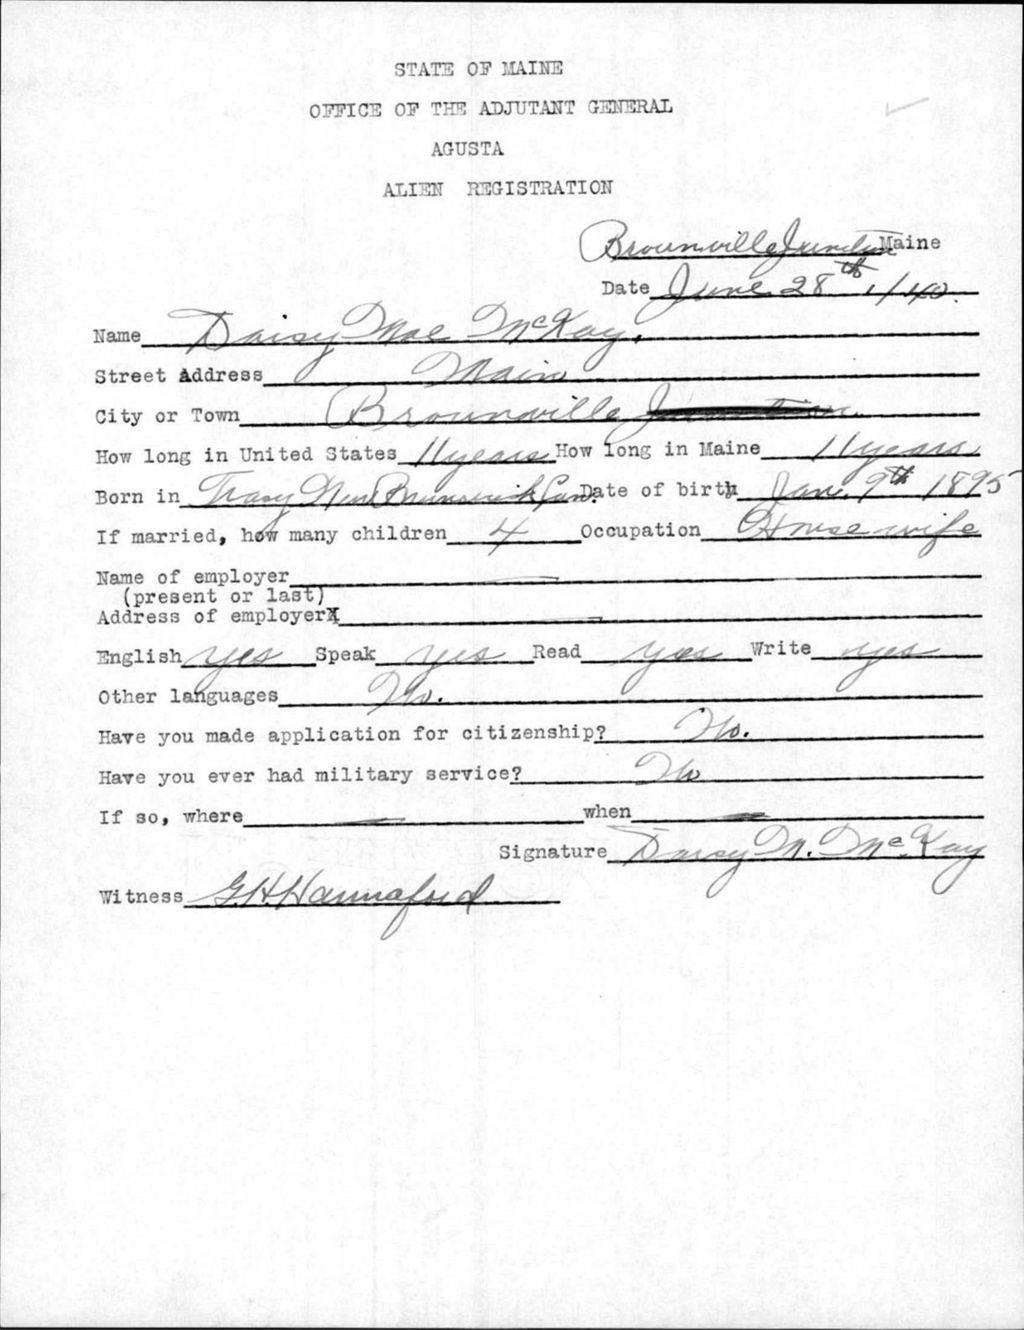 STATE OF MAINE
OFFICE OF THE ADJUTANT GENERAL
AGUSTA
ALIEN REGISTRATION
Brownville Junction Maine
Date June 28th, 1940.
Name Daisy Mae McKay.
Street Address Main
City or Town Brownville Junction.
How long in United States 11 years How long in Maine 11 years
Born in Tracy New Brunswick Can. Date of birth Jan. 9th 1895
If married, how many children 4 Occupation Housewife
Name of employer —
(present or last)
Address of employer —
English yes Speak yes Read yes Write yes
Other languages No.
Have you made application for citizenship? No.
Have you ever had military service? No
If so, where — when —
Signature Daisy M. McKay
Witness G.H. Hannaford